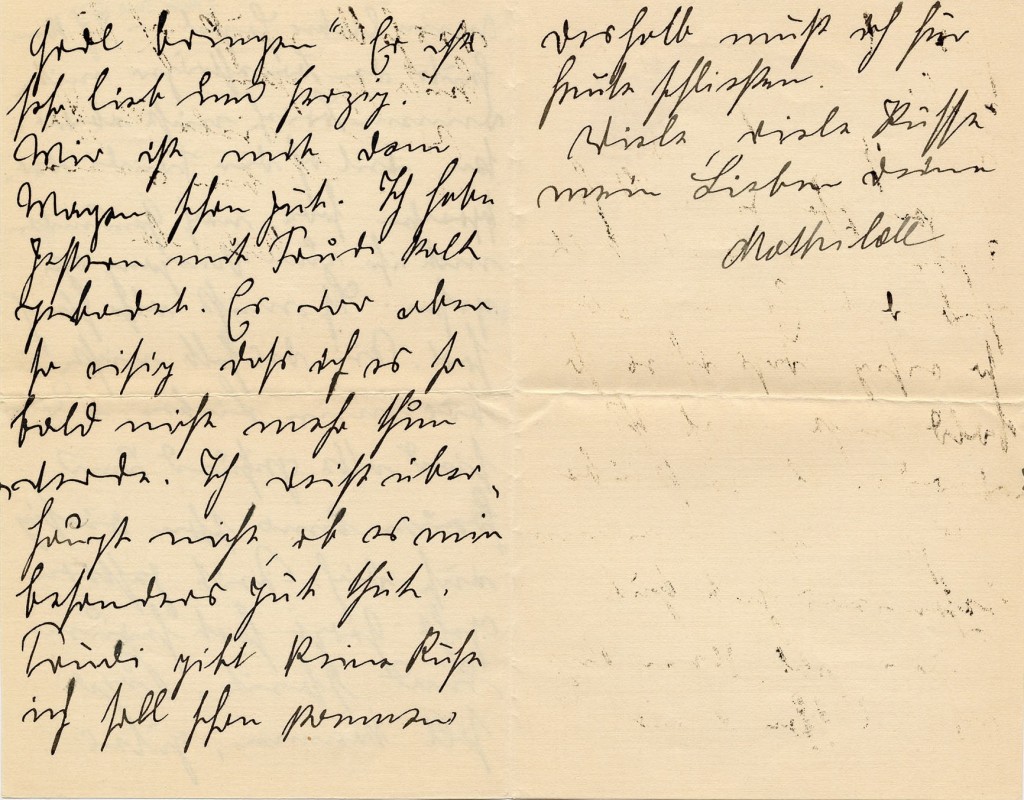 Gödl bringen" Er ist
sehr lieb und herzig.
Mir ist mit dem
Magen schon gut. Ich habe
gestern mit Trudi kalt
gebadet. Es war aber
so eisig dass ich es so
bald nicht mehr thun
werde. Ich weiß über-
haupt nicht, ob es mir
besonders gut thut.
Trudi gibt keine Ruhe
ich soll schon kommen
deshalb muß ich für
heute schließen.
Viele, viele Küsse
mein Lieber deine